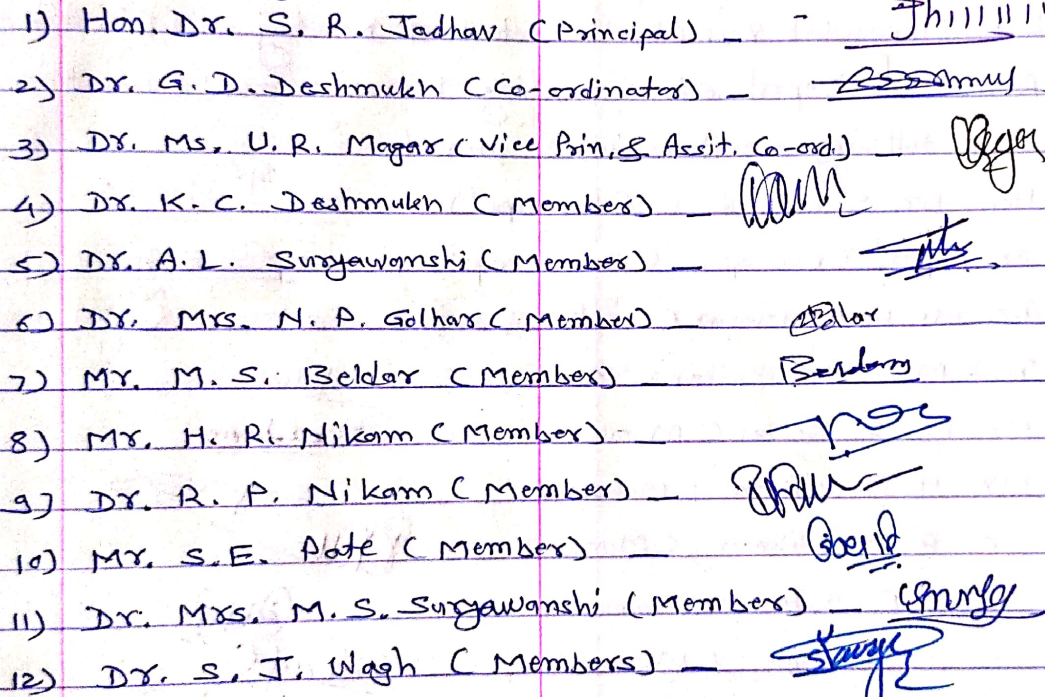 1) Hon. Dr. S. R. Jadhav (Principal) -
2) Dr. G. D. Deshmukh (Co-ordinator) -
3) Dr. Ms. U. R. Magar (Vice Prin. & Assit. Co-ord.) -
4) Dr. K. C. Deshmukh (Member) -
5) Dr. A. L. Suryawanshi (Member) -
6) Dr. Mrs. N. P. Golhar (Member) -
7) Mr. M. S. Beldar (Member) -
8) Mr. H. R. Nikam (Member) -
9) Dr. R. P. Nikam (Member) -
10) Mr. S. E. Pate (Member) -
11) Dr. Mrs. M. S. Suryawanshi (Member) -
12) Dr. S. J. Wagh (Members) -